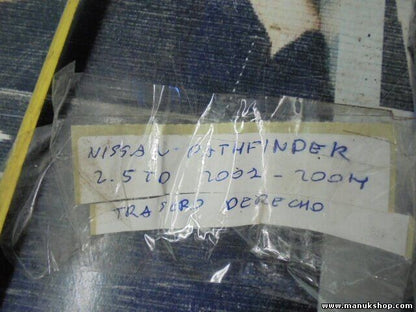 NISSAN PATHFINDER
2.5TD 2002-2004
TRASERO DERECHO
www.manukshop.com